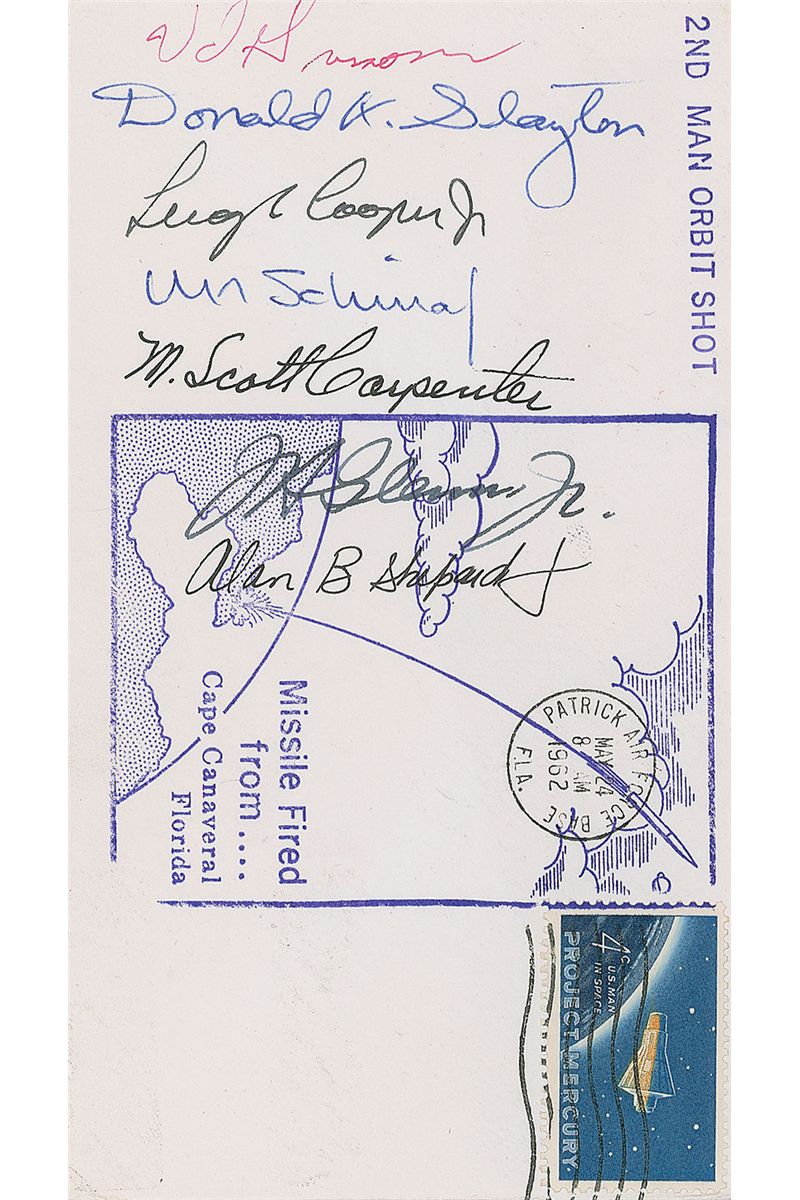 2ND MAN ORBIT SHOT
Donald K. Slayton
Cooper Jr
M. Scott Carpenter
JH Glenn Jr.
Alan B Shepard Jr
Missile Fired
from....
Cape Canaveral
Florida
PATRICK AIR FORCE BASE
MAY 24
8 AM
1962
FLA.
4c
U.S. MAN
IN SPACE
PROJECT MERCURY